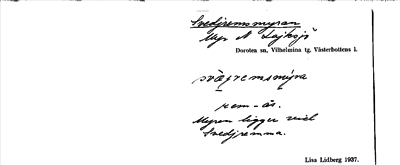 Svedjremsmyran
Myr N Lajksjö
Dorotea sn, Vilhelmina tg. Västerbottens l.
rem-ås.
Myran ligger vid
Svedjremma.
Lisa Lidberg 1937.